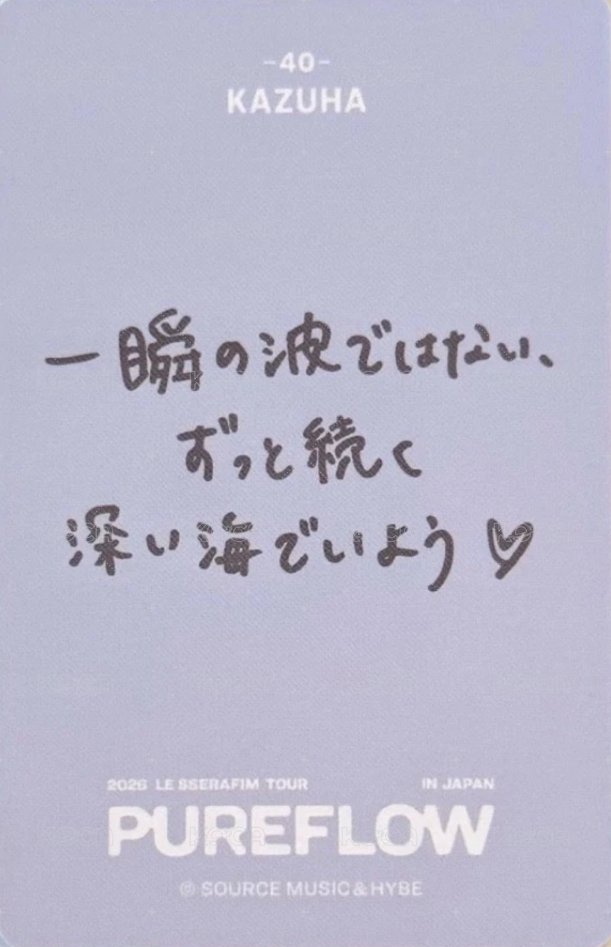 -40-
KAZUHA
一瞬の波ではない、
ずっと続く
深い海でいよう♡
2026 LE SSERAFIM TOUR IN JAPAN
PUREFLOW
℗ SOURCE MUSIC & HYBE